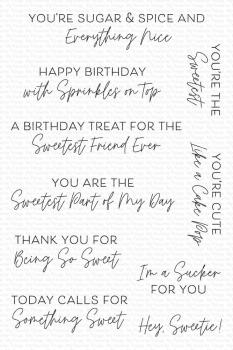 YOU'RE SUGAR & SPICE AND
Everything Nice
YOU'RE THE
Sweetest
HAPPY BIRTHDAY
with Sprinkles on Top
A BIRTHDAY TREAT FOR THE
Sweetest Friend Ever
YOU'RE CUTE
Like a Cake Pop
YOU ARE THE
Sweetest Part of My Day
THANK YOU FOR
Being So Sweet
I'm a Sucker
FOR YOU
TODAY CALLS FOR
Something Sweet
Hey, Sweetie!